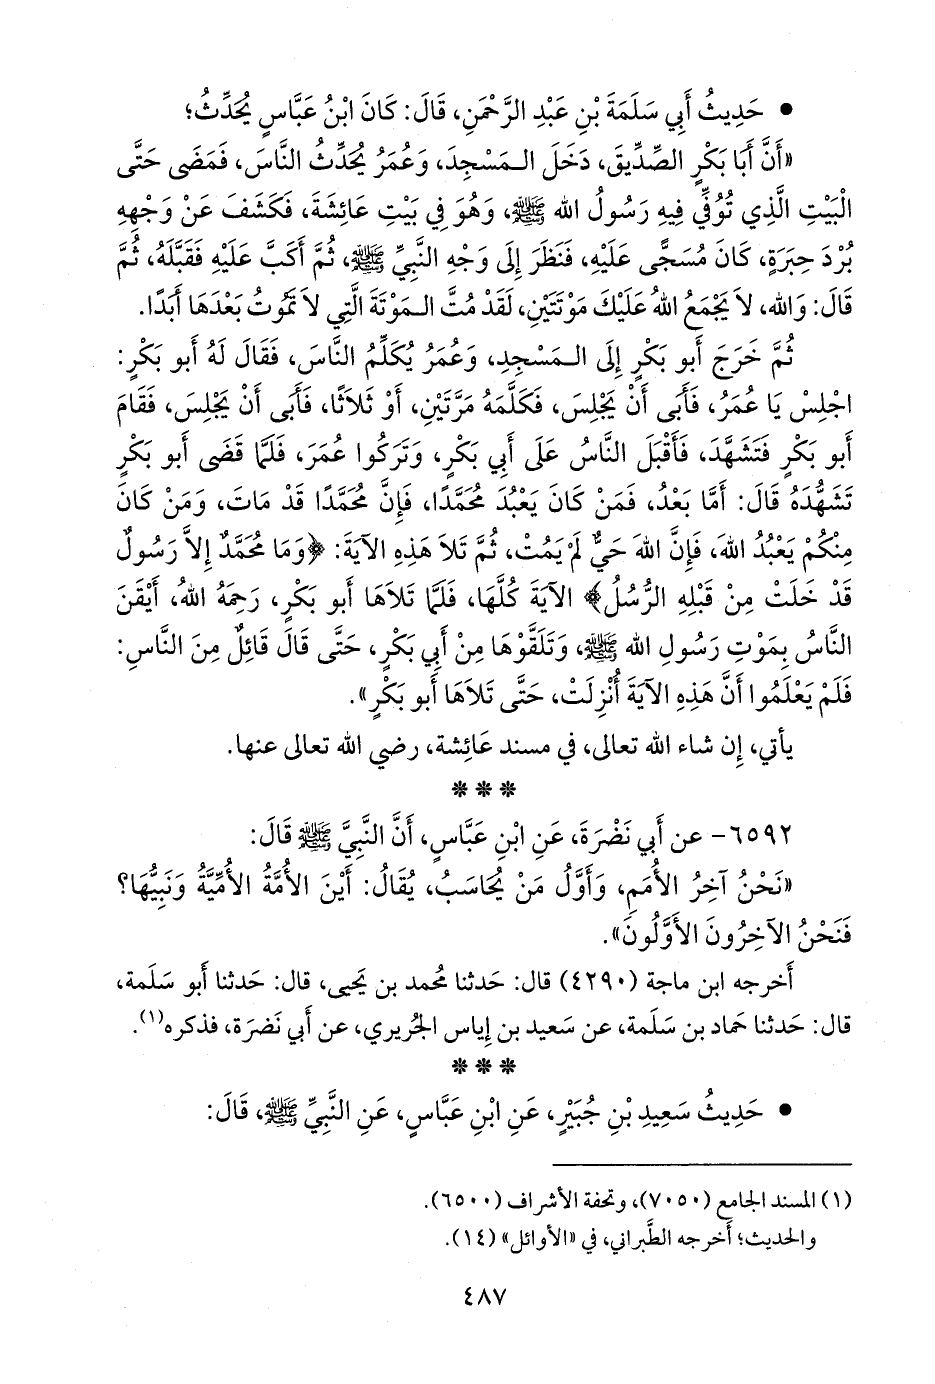 • حَدِيثُ أَبِي سَلَمَةَ بْنِ عَبْدِ الرَّحْمَنِ، قَالَ: كَانَ ابْنُ عَبَّاسٍ يُحَدِّثُ؛
«أَنَّ أَبَا بَكْرٍ الصِّدِّيقَ، دَخَلَ الـمَسْجِدَ، وَعُمَرُ يُحَدِّثُ النَّاسَ، فَمَضَى حَتَّى
الْبَيْتِ الَّذِي تُوُفِّيَ فِيهِ رَسُولُ الله ﷺ، وَهُوَ فِي بَيْتِ عَائِشَةَ، فَكَشَفَ عَنْ وَجْهِهِ
بُرْدَ حِبَرَةٍ، كَانَ مُسَجًّى عَلَيْهِ، فَنَظَرَ إِلَى وَجْهِ النَّبِيِّ ﷺ، ثُمَّ أَكَبَّ عَلَيْهِ فَقَبَّلَهُ، ثُمَّ
قَالَ: وَالله، لاَ يَجْمَعُ اللهُ عَلَيْكَ مَوْتَتَيْنِ، لَقَدْ مُتَّ الـمَوْتَةَ الَّتِي لاَ تَمُوتُ بَعْدَهَا أَبَدًا.
ثُمَّ خَرَجَ أَبو بَكْرٍ إِلَى الـمَسْجِدِ، وَعُمَرُ يُكَلِّمُ النَّاسَ، فَقَالَ لَهُ أَبو بَكْرٍ:
اجْلِسْ يَا عُمَرُ، فَأَبَى أَنْ يَجْلِسَ، فَكَلَّمَهُ مَرَّتَيْنِ، أَوْ ثَلاَثًا، فَأَبَى أَنْ يَجْلِسَ، فَقَامَ
أَبو بَكْرٍ فَتَشَهَّدَ، فَأَقْبَلَ النَّاسُ عَلَى أَبِي بَكْرٍ، وَتَرَكُوا عُمَرَ، فَلَمَّا قَضَى أَبو بَكْرٍ
تَشَهُّدَهُ قَالَ: أَمَّا بَعْدُ، فَمَنْ كَانَ يَعْبُدَ مُحَمَّدًا، فَإِنَّ مُحَمَّدًا قَدْ مَاتَ، وَمَنْ كَانَ
مِنْكُمْ يَعْبُدُ اللهَ، فَإِنَّ اللهَ حَيٌّ لَمْ يَمُتْ، ثُمَّ تَلاَ هَذِهِ الآيَةَ: ﴿وَمَا مُحَمَّدٌ إِلاَّ رَسُولٌ
قَدْ خَلَتْ مِنْ قَبْلِهِ الرُّسُلُ﴾ الآيَةَ كُلَّهَا، فَلَمَّا تَلاَهَا أَبو بَكْرٍ، رَحِمَهُ اللهُ، أَيْقَنَ
النَّاسُ بِمَوْتِ رَسُولِ الله ﷺ، وَتَلَقَّوْهَا مِنْ أَبِي بَكْرٍ، حَتَّى قَالَ قَائِلٌ مِنَ النَّاسِ:
فَلَمْ يَعْلَمُوا أَنَّ هَذِهِ الآيَةَ أُنْزِلَتْ، حَتَّى تَلاَهَا أَبو بَكْرٍ».
يأتي، إن شاء الله تعالى، في مسند عَائِشة، رضي الله تعالى عنها.
* * *
٦٥٩٢- عن أَبي نَضْرَةَ، عَنِ ابْنِ عَبَّاسٍ، أَنَّ النَّبِيَّ ﷺ قَالَ:
«نَحْنُ آخِرُ الأُمَمِ، وَأَوَّلُ مَنْ يُحَاسَبُ، يُقَالُ: أَيْنَ الأُمَّةُ الأُمِّيَّةُ وَنَبِيُّهَا؟
فَنَحْنُ الآخِرُونَ الأَوَّلُونَ».
أَخرجه ابن ماجة (٤٢٩٠) قال: حَدثنا مُحمد بن يَحيى، قال: حَدثنا أَبو سَلَمة،
قال: حَدثنا حَماد بن سَلَمة، عن سَعيد بن إِياس الجُريري، عن أَبي نَضرَة، فذكره(١).
* * *
• حَدِيثُ سَعِيدِ بْنِ جُبَيْرٍ، عَنِ ابْنِ عَبَّاسٍ، عَنِ النَّبِيِّ ﷺ، قَالَ:
(١) المسند الجامع (٧٠٥٠)، وتحفة الأشراف (٦٥٠٠).
والحديث؛ أخرجه الطَّبراني، في «الأوائل» (١٤).
٤٨٧